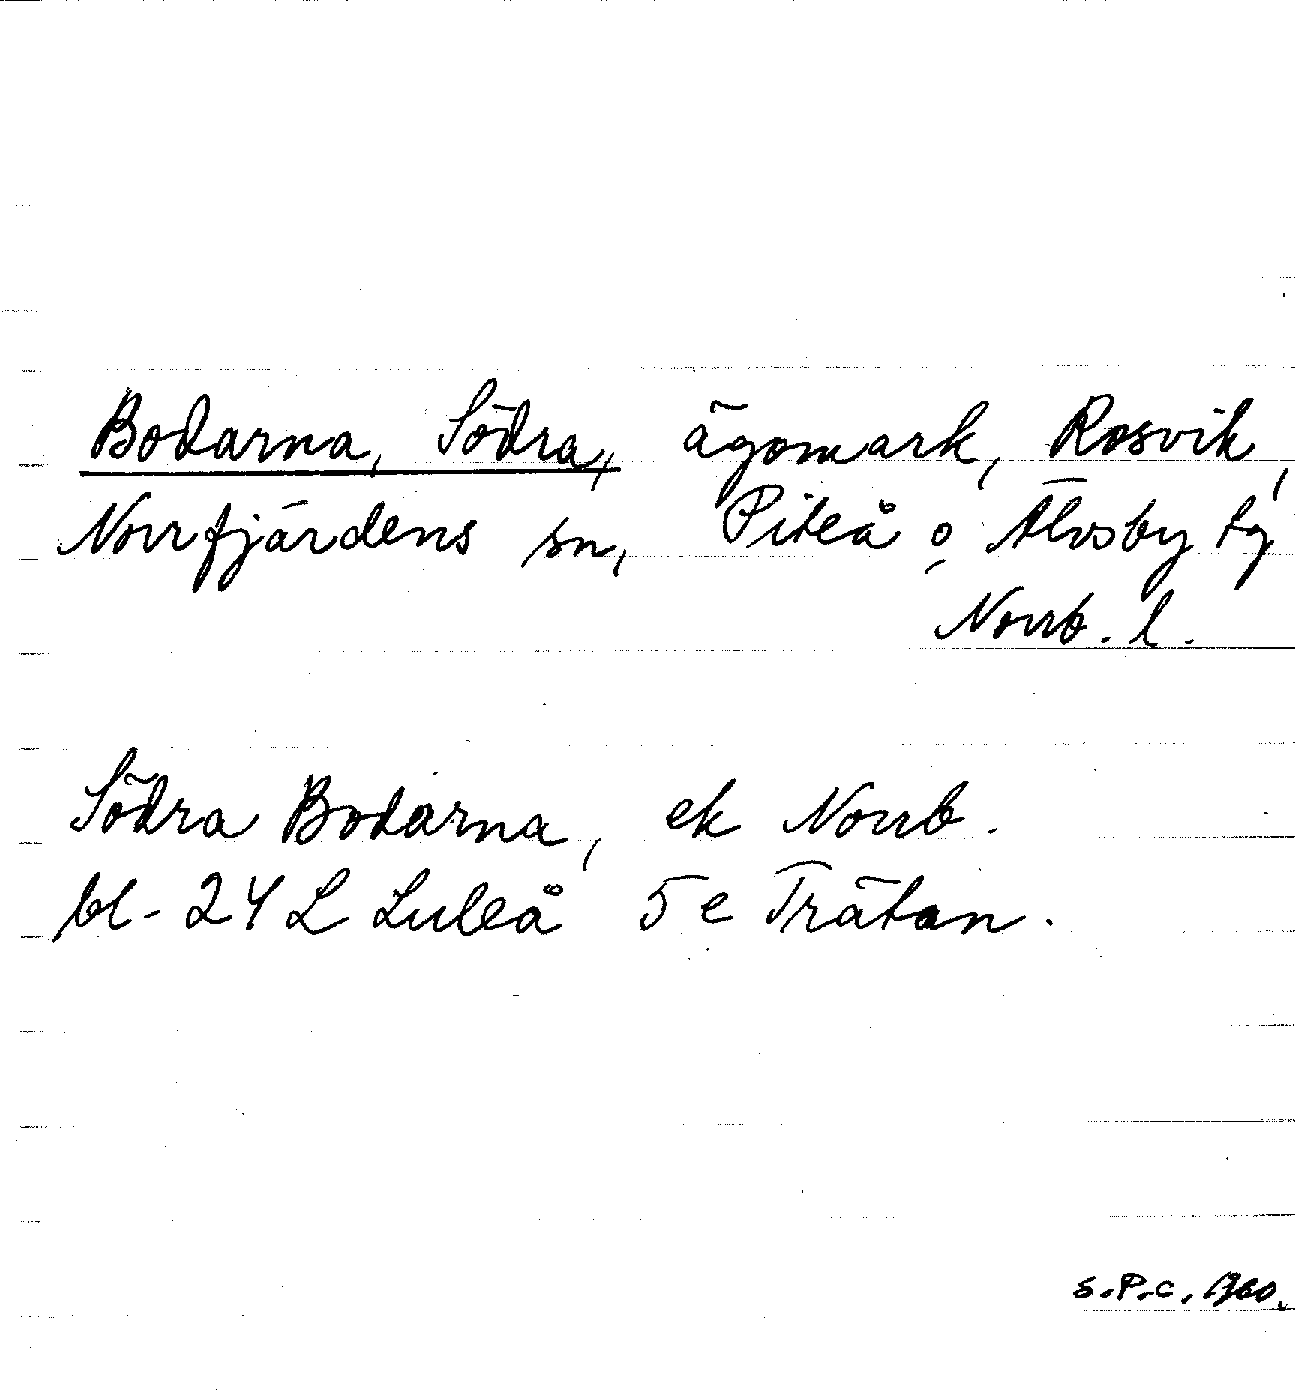 Bodarna, Södra, ägomark, Rosvik,
Norrfjärdens sn, Piteå o. Älvsby tg
Norrb. l.
Södra Bodarna, ek Norrb.
bl. 24 L Luleå 5 e Trätan.
S.P.C. 1960.